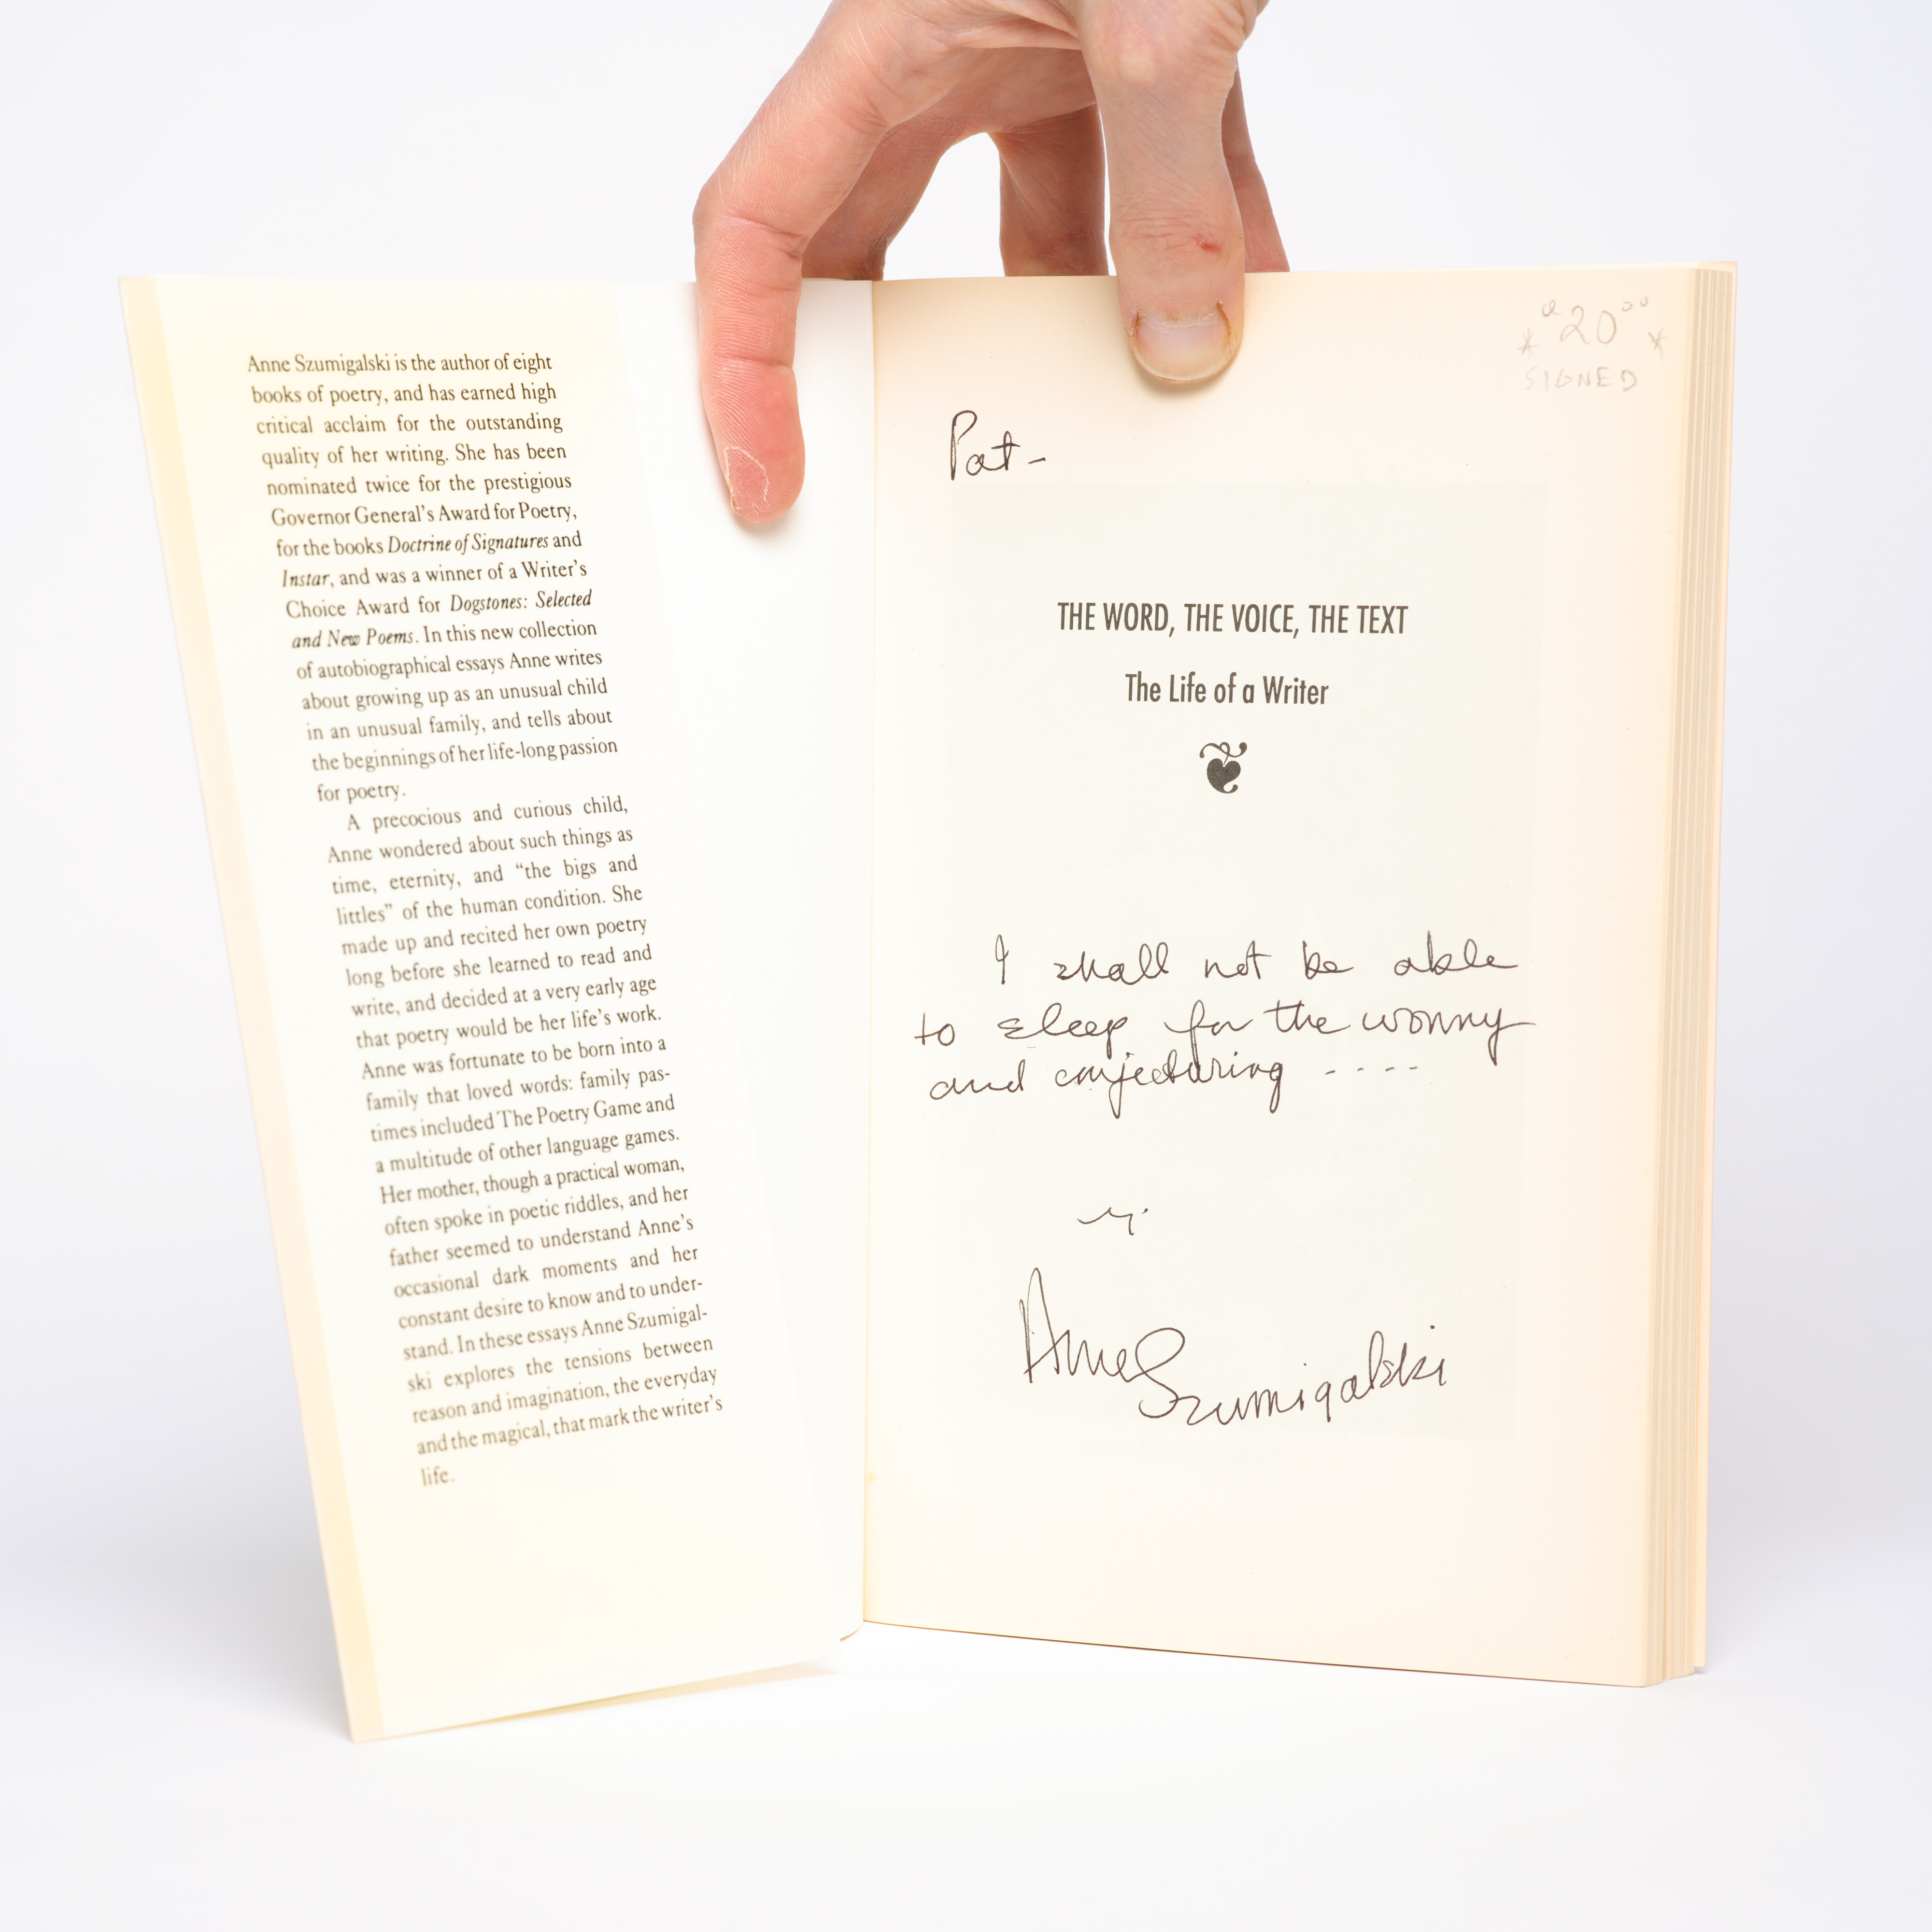 Anne Szumigalski is the author of eight
books of poetry, and has earned high
critical acclaim for the outstanding
quality of her writing. She has been
nominated twice for the prestigious
Governor General's Award for Poetry,
for the books Doctrine of Signatures and
Instar, and was a winner of a Writer's
Choice Award for Dogstones: Selected
and New Poems. In this new collection
of autobiographical essays Anne writes
about growing up as an unusual child
in an unusual family, and tells about
the beginnings of her life-long passion
for poetry.
A precocious and curious child,
Anne wondered about such things as
time, eternity, and “the bigs and
littles” of the human condition. She
made up and recited her own poetry
long before she learned to read and
write, and decided at a very early age
that poetry would be her life's work.
Anne was fortunate to be born into a
family that loved words: family pas-
times included The Poetry Game and
a multitude of other language games.
Her mother, though a practical woman,
often spoke in poetic riddles, and her
father seemed to understand Anne's
occasional dark moments and her
constant desire to know and to under-
stand. In these essays Anne Szumigal-
ski explores the tensions between
reason and imagination, the everyday
and the magical, that mark the writer's
life.
20⁰⁰
SIGNED
Pat -
THE WORD, THE VOICE, THE TEXT
The Life of a Writer
I shall not be able
to sleep for the worry
and conjecturing ----
Anne
Szumigalski